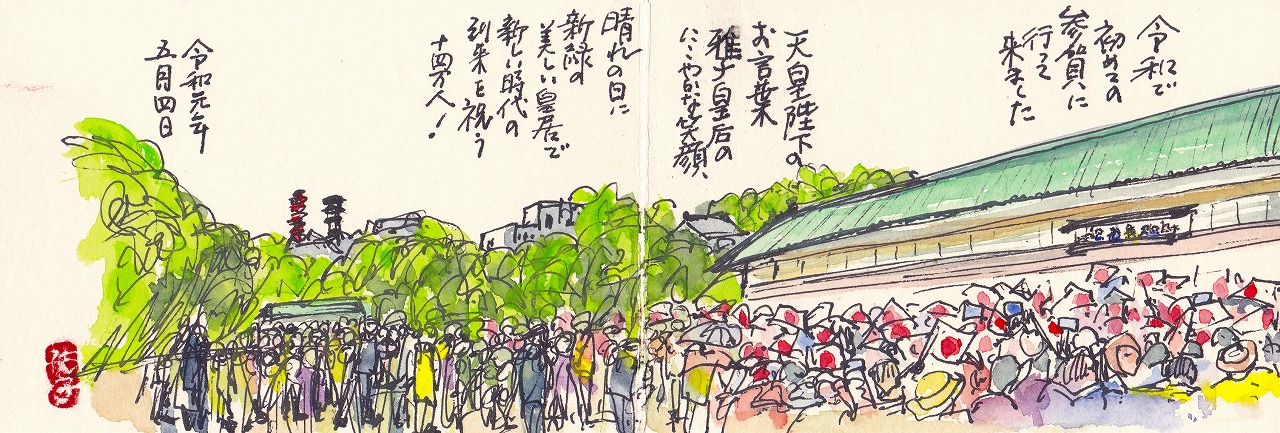 令和で
初めての
参賀に
行って
来ました
天皇陛下の
お言葉
雅子皇后の
にこやかな笑顔、
晴れの日に
新緑の
美しい皇居で
新しい時代の
到来を祝う
十四万人！
令和元年
五月四日